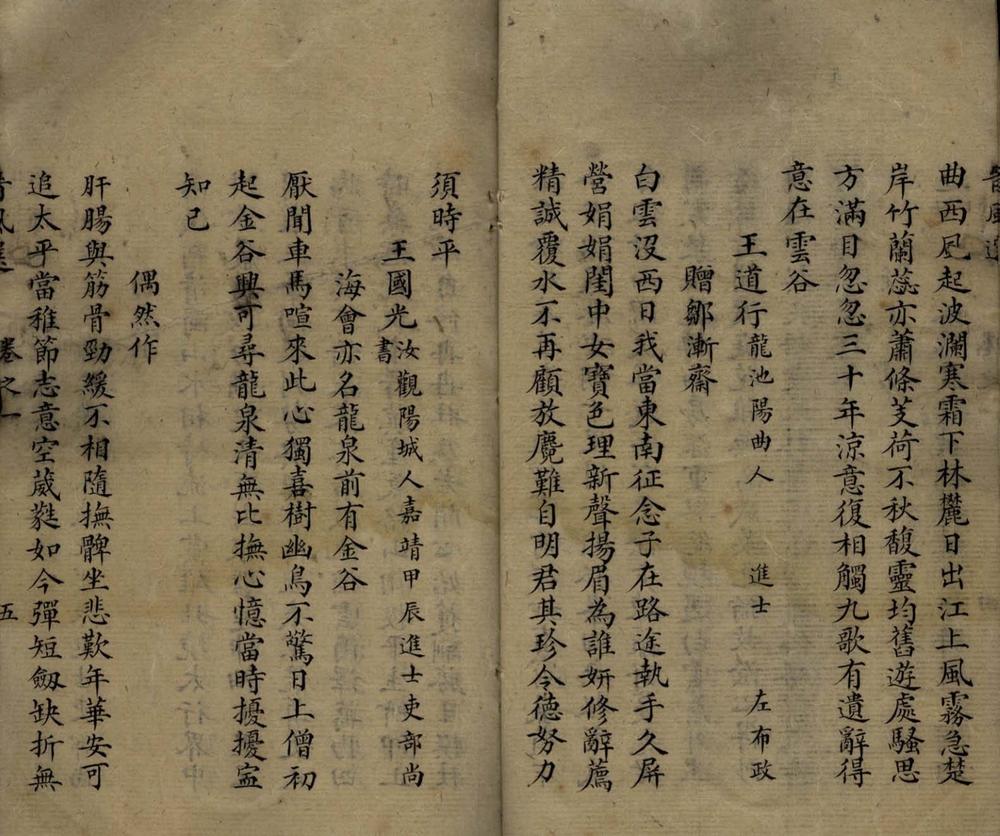 曲西風起波瀾寒霜下林麓日出江上風霧急楚
岸竹蘭蕊亦蕭條芰荷不秋馥靈均舊遊處騷思
方滿目忽忽三十年涼意復相觸九歌有遺辭得
意在雲谷
王道行龍池陽曲人 進士 左布政
贈鄒漸齋
白雲沒西日我當東南征念子在路途執手久屏
營娟娟閨中女寶色理新聲揚眉為誰妍修辭薦
精誠覆水不再顧放麑難自明君其珍令德努力
須時平
王國光汝觀陽城人嘉靖甲辰進士吏部尚書
海會亦名龍泉前有金谷
厭聞車馬喧來此心獨喜樹幽鳥不驚日上僧初
起金谷興可尋龍泉清無比撫心憶當時擾擾寍
知已
偶然作
肝腸與筋骨勁緩不相隨撫髀坐悲歎年華安可
追太平當稚節志意空葳蕤如今彈短劒缺折無
卷之一 五